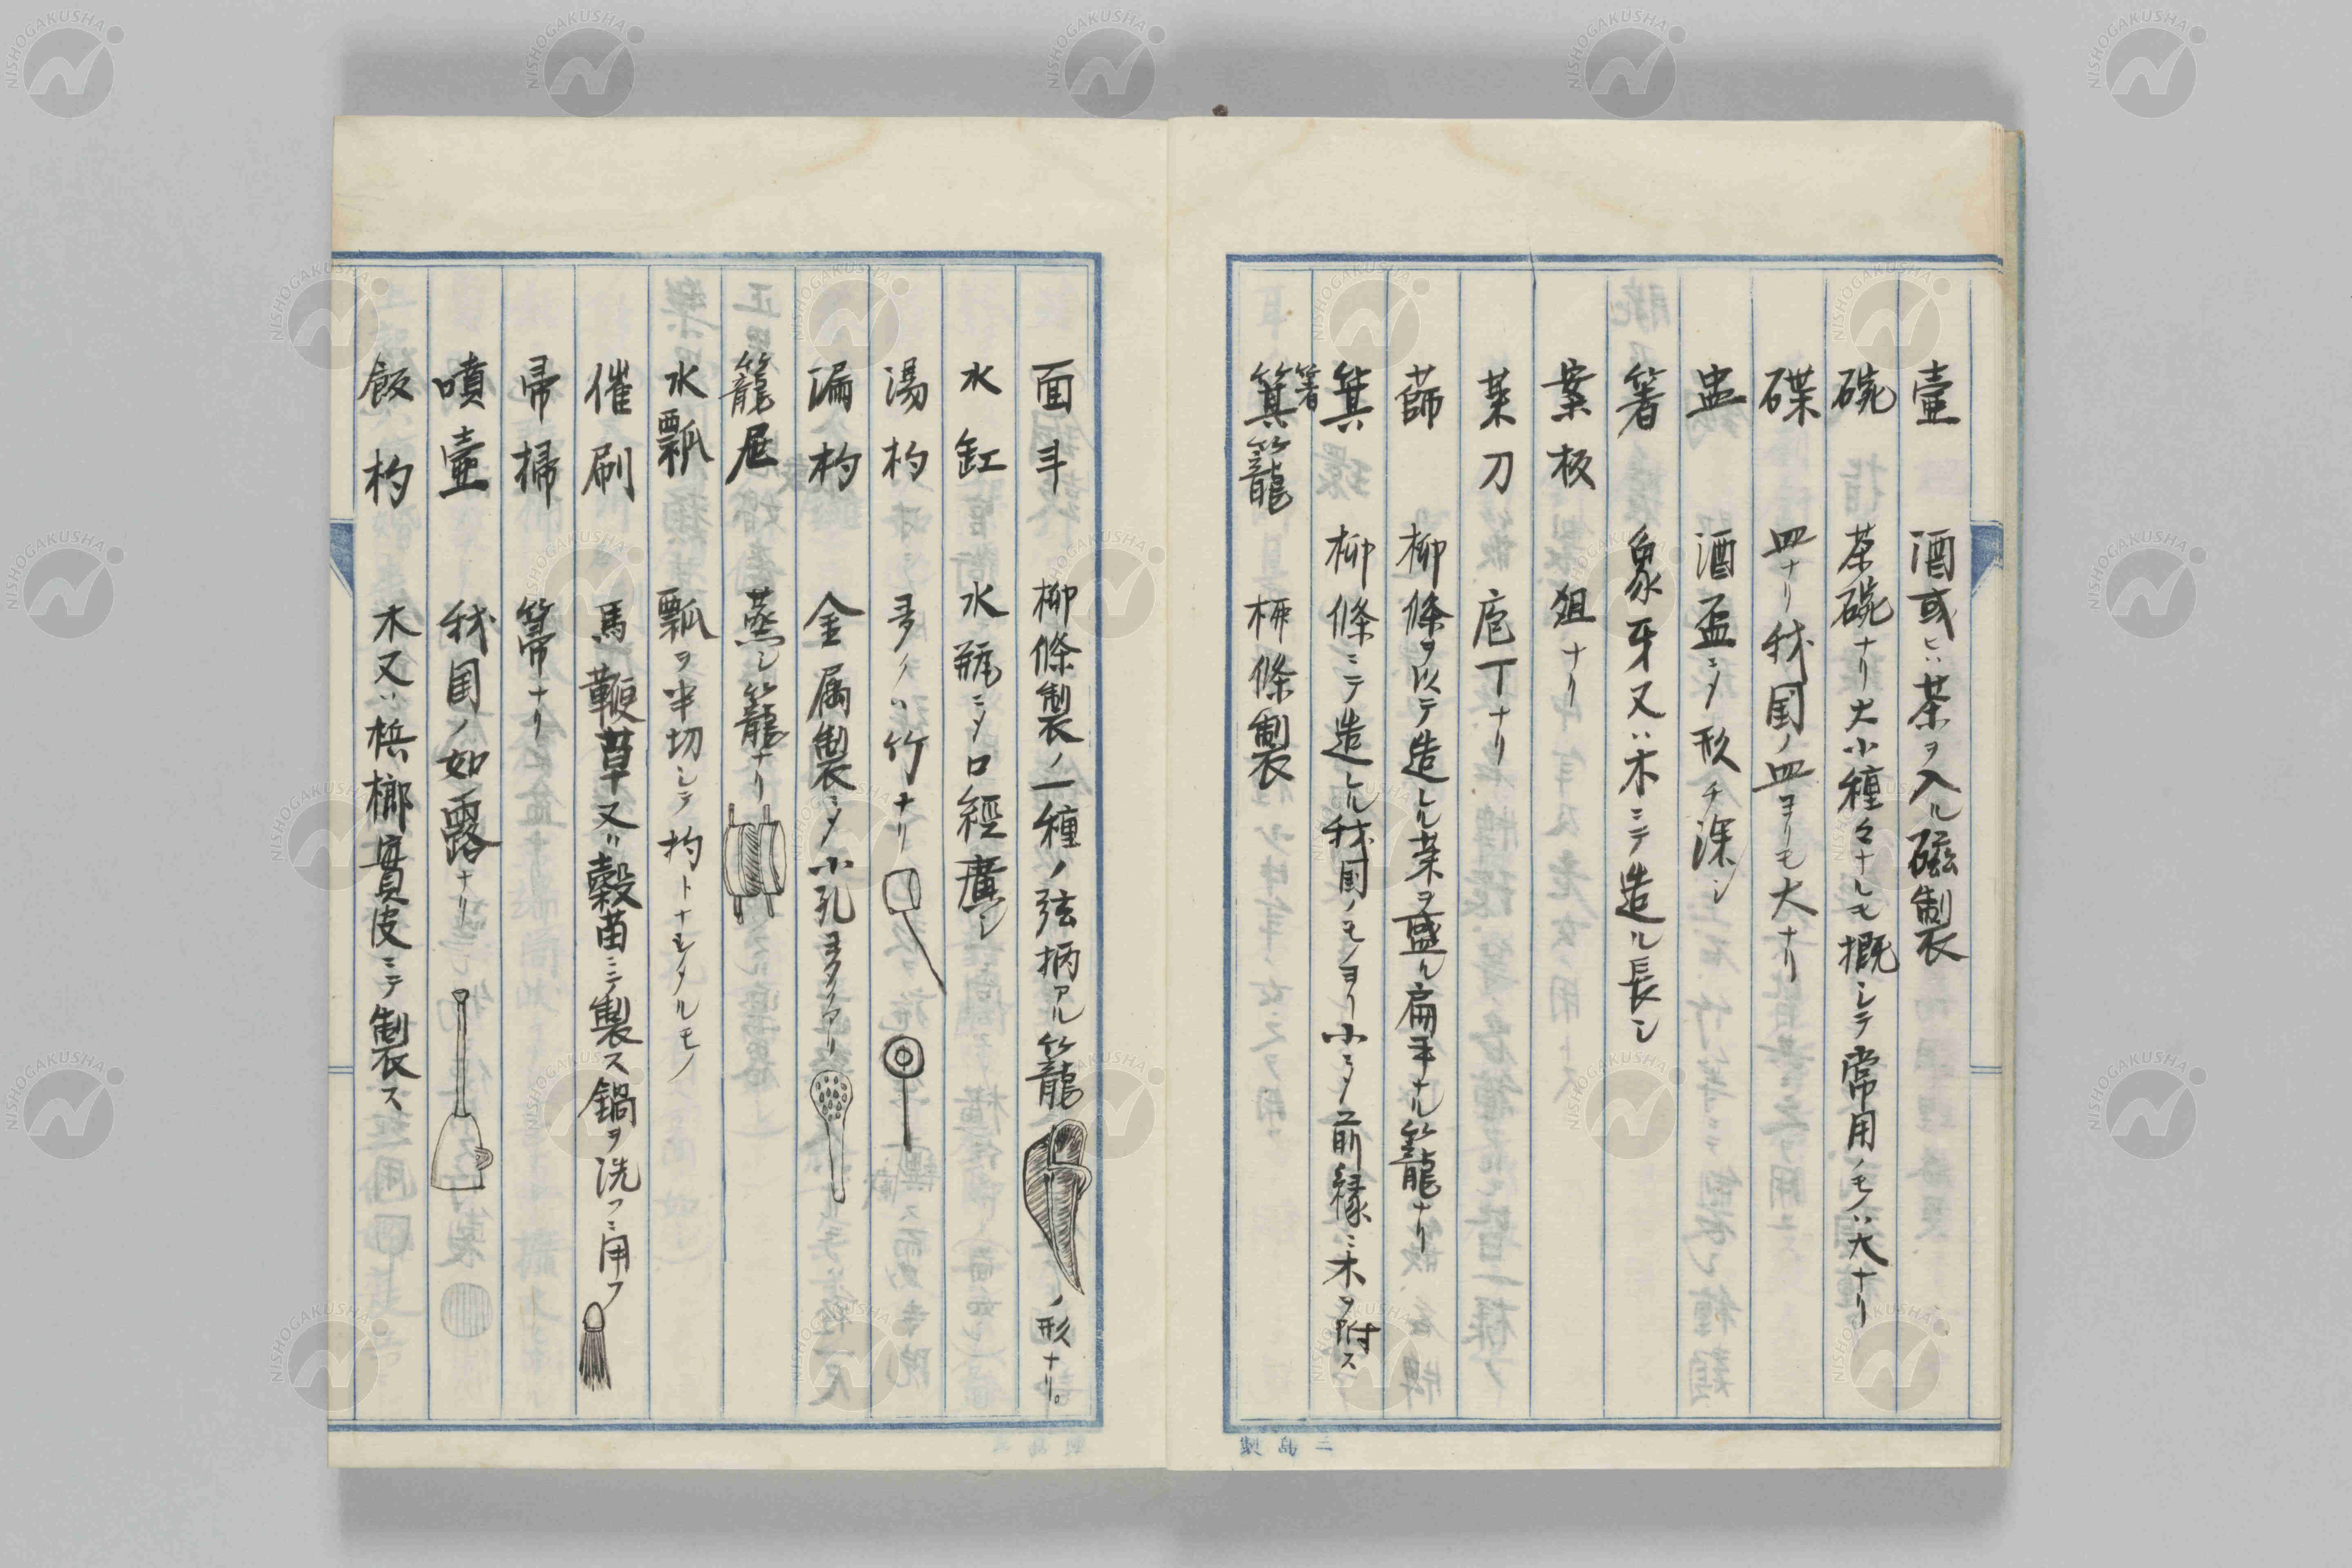 壷 酒或ヒハ茶ヲ入ル磁製
碗 茶碗ナリ大小種々ナルモ概シテ常用ノモノハ大ナリ
碟 皿ナリ我国ノ皿ヨリモ大ナリ
盅 酒盃ニシテ形チ深シ
箸 象牙又ハ木ニテ造ル長シ
案板 俎ナリ
菜刀 庖丁ナリ
篩 柳條ヲ以テ造レル菜ヲ盛ル扁平ナル籠ナリ
箕 柳條ニテ造レル我国ノモノヨリ小ニシテ前縁ニ木ヲ附ス
箸
箕籠 柳條製
面斗 柳條製ノ一種ノ弦柄アル籠ノ形ナリ。
水缸 水瓶ニシテ口經廣シ
湯杓 多クハ竹ナリ
漏杓 金属製ニシテ小孔ヨタクアリ
籠屉 蒸シ籠ナリ
水瓢 瓢ヲ半切シテ杓トナシタルモノ
催刷 馬鞭草又ハ穀苗ニテ製ス鍋ヲ洗フニ用フ
帚掃 箒ナリ
噴壷 我国ノ如露ナリ
飯杓 木又ハ梹榔實皮ニテ製ス
三島製
NISHOGAKUSHA